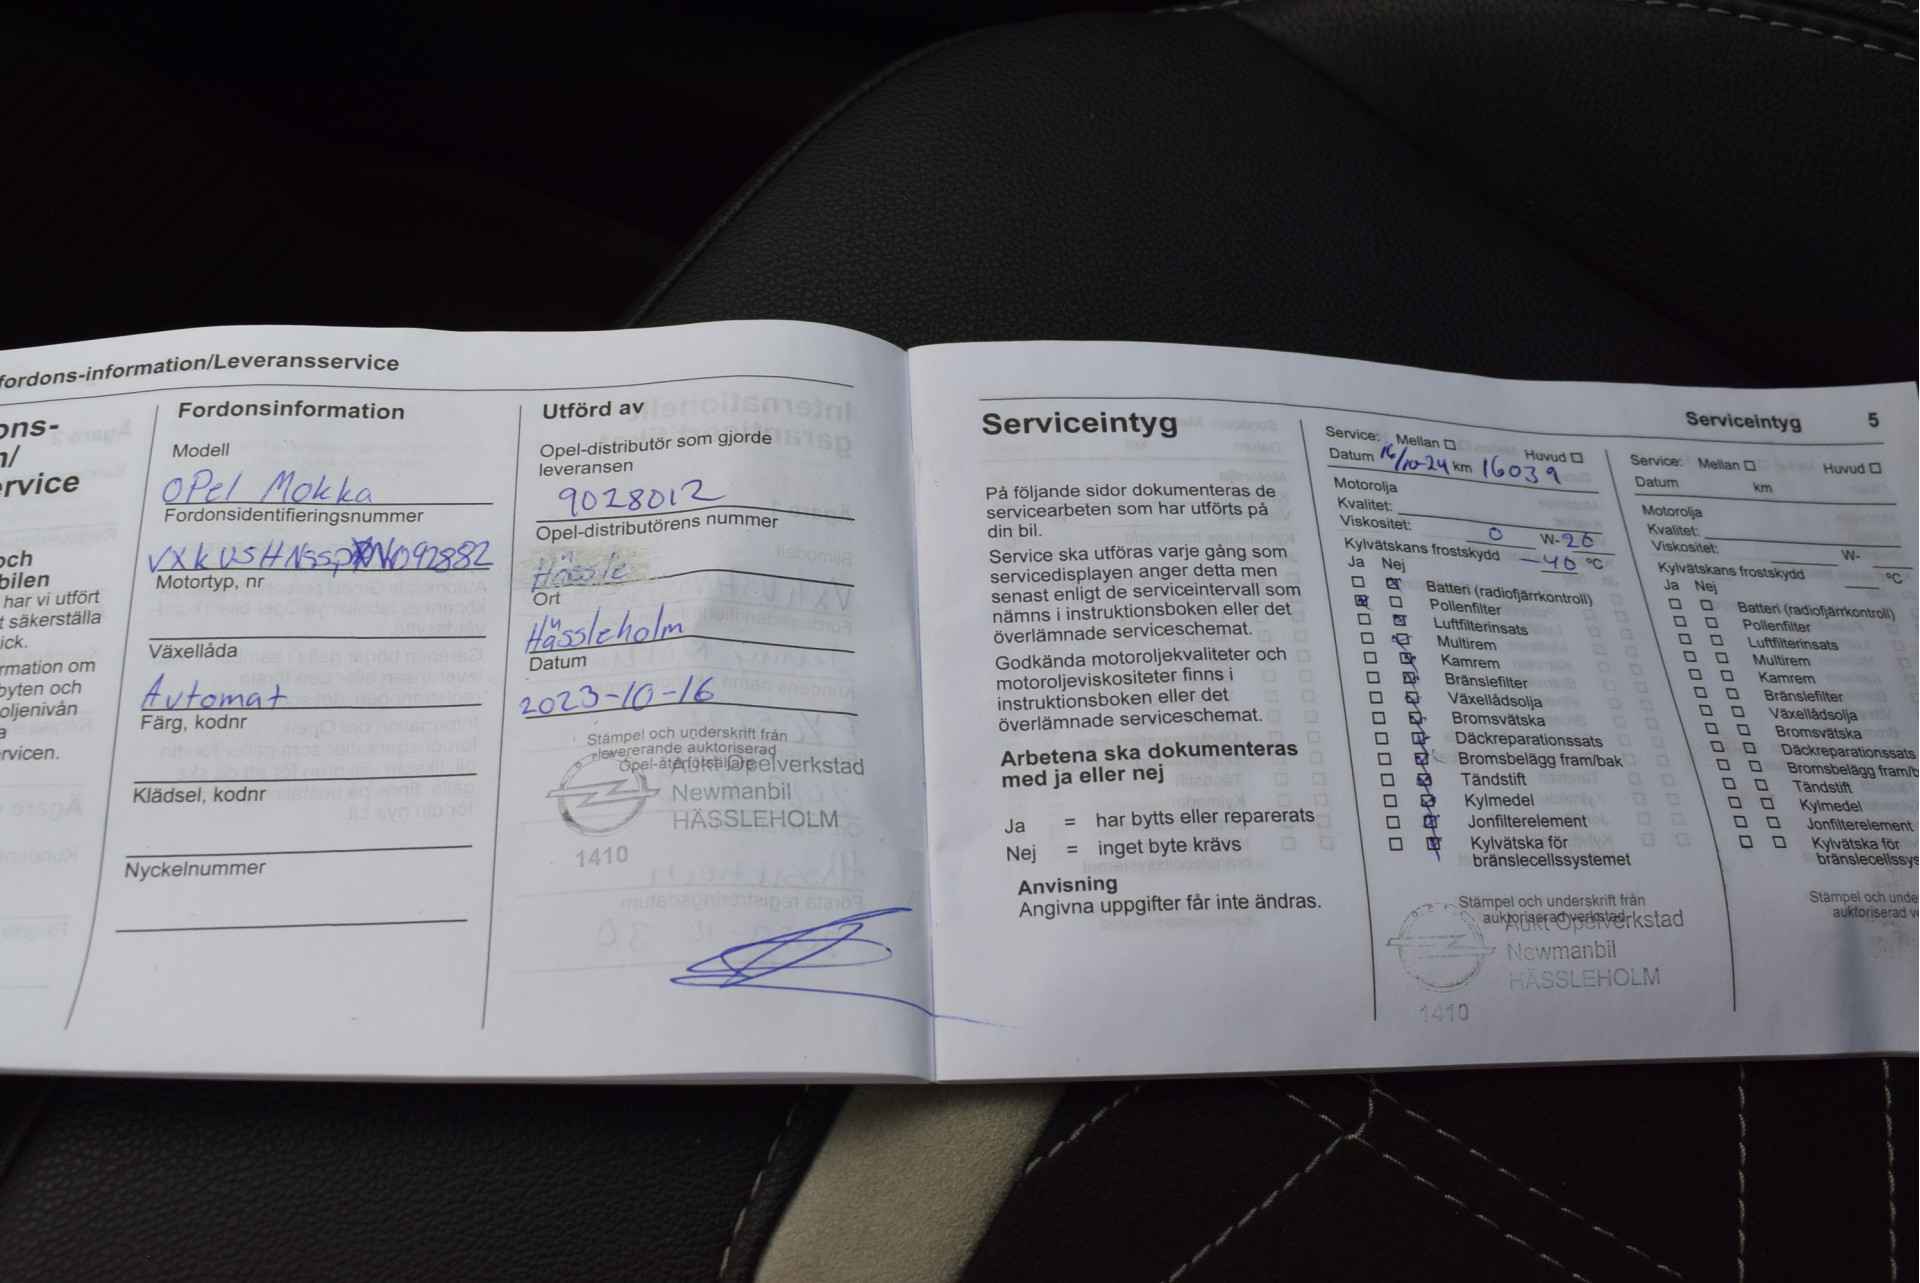 fordons-information/Leveransservice
ons-
n/
ervice
och
bilen
har vi utfört
t säkerställa
ick.
rmation om
byten och
oljenivån
a
rvicen.
Fordonsinformation
Modell
OPel Mokka
Fordonsidentifieringsnummer
Motortyp, nr
Växellåda
Automat
Färg, kodnr
Klädsel, kodnr
Nyckelnummer
Utförd av
Opel-distributör som gjorde
leveransen
9028012
Opel-distributörens nummer
Hässle
Ort
Hässleholm
Datum
2023-10-16
Stämpel och underskrift från
levererande auktoriserad
Opel-återförsäljare
Aukt Opelverkstad
Newmanbil
HÄSSLEHOLM
1410
Serviceintyg
På följande sidor dokumenteras de
servicearbeten som har utförts på
din bil.
Service ska utföras varje gång som
servicedisplayen anger detta men
senast enligt de serviceintervall som
nämns i instruktionsboken eller det
överlämnade serviceschemat.
Godkända motoroljekvaliteter och
motoroljeviskositeter finns i
instruktionsboken eller det
överlämnade serviceschemat.
Arbetena ska dokumenteras
med ja eller nej
Ja = har bytts eller reparerats
Nej = inget byte krävs
Anvisning
Angivna uppgifter får inte ändras.
Serviceintyg 5
Service: Mellan Huvud
Datum 16/10-24 km 16039
Motorolja
Kvalitet:
Viskositet: 0 W-20
Kylvätskans frostskydd -40 °C
Ja Nej
Batteri (radiofjärrkontroll)
Pollenfilter
Luftfilterinsats
Multirem
Kamrem
Bränslefilter
Växellådsolja
Bromsvätska
Däckreparationssats
Bromsbelägg fram/bak
Tändstift
Kylmedel
Jonfilterelement
Kylvätska för
bränslecellssystemet
Stämpel och underskrift från
auktoriserad verkstad
Aukt Opelverkstad
Newmanbil
HÄSSLEHOLM
1410
Service: Mellan Huvud
Datum km
Motorolja
Kvalitet:
Viskositet: W-
Kylvätskans frostskydd °C
Ja Nej
Batteri (radiofjärrkontroll)
Pollenfilter
Luftfilterinsats
Multirem
Kamrem
Bränslefilter
Växellådsolja
Bromsvätska
Däckreparationssats
Bromsbelägg fram/b
Tändstift
Kylmedel
Jonfilterelement
Kylvätska för
bränslecellssys
Stämpel och unde
auktoriserad v